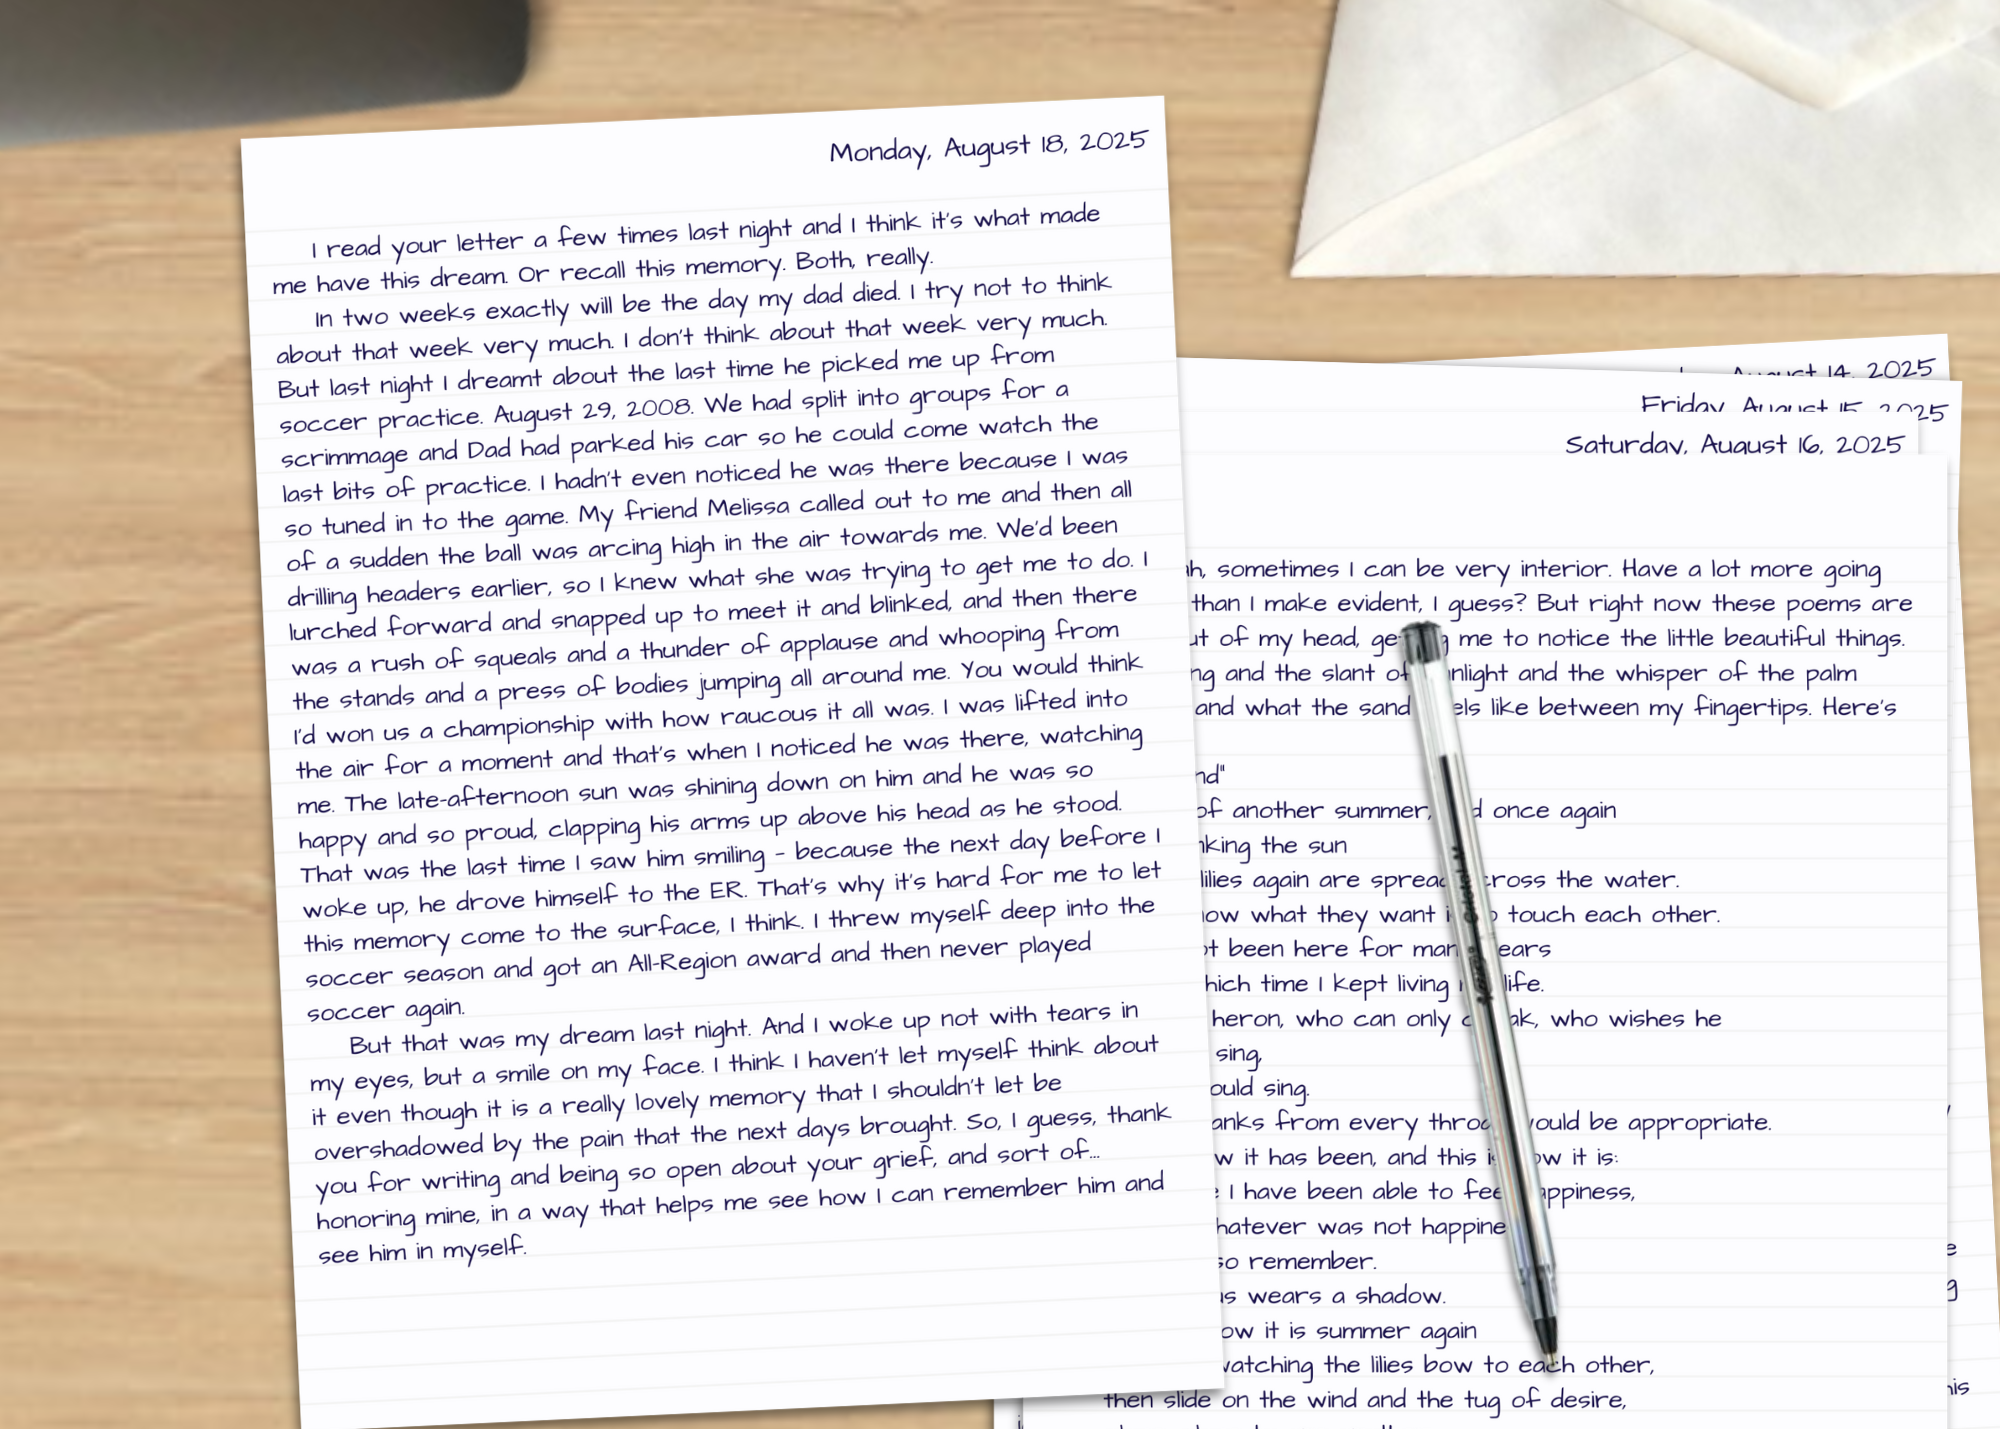 Monday, August 18, 2025
I read your letter a few times last night and I think it's what made
me have this dream. Or recall this memory. Both, really.
In two weeks exactly will be the day my dad died. I try not to think
about that week very much. I don't think about that week very much.
But last night I dreamt about the last time he picked me up from
soccer practice. August 29, 2008. We had split into groups for a
scrimmage and Dad had parked his car so he could come watch the
last bits of practice. I hadn't even noticed he was there because I was
so tuned in to the game. My friend Melissa called out to me and then all
of a sudden the ball was arcing high in the air towards me. We'd been
drilling headers earlier, so I knew what she was trying to get me to do. I
lurched forward and snapped up to meet it and blinked, and then there
was a rush of squeals and a thunder of applause and whooping from
the stands and a press of bodies jumping all around me. You would think
I'd won us a championship with how raucous it all was. I was lifted into
the air for a moment and that's when I noticed he was there, watching
me. The late-afternoon sun was shining down on him and he was so
happy and so proud, clapping his arms up above his head as he stood.
That was the last time I saw him smiling - because the next day before I
woke up, he drove himself to the ER. That's why it's hard for me to let
this memory come to the surface, I think. I threw myself deep into the
soccer season and got an All-Region award and then never played
soccer again.
But that was my dream last night. And I woke up not with tears in
my eyes, but a smile on my face. I think I haven't let myself think about
it even though it is a really lovely memory that I shouldn't let be
overshadowed by the pain that the next days brought. So, I guess, thank
you for writing and being so open about your grief, and sort of...
honoring mine, in a way that helps me see how I can remember him and
see him in myself.
August 14, 2025
Friday, August 15, 2025
Saturday, August 16, 2025
sometimes I can be very interior. Have a lot more going
than I make evident, I guess? But right now these poems are
of my head, me to notice the little beautiful things.
and the slant of and the whisper of the palm
and what the sand like between my fingertips. Here's
of another summer, once again
the sun
lilies again are spread across the water.
what they want touch each other.
been here for many years
time I kept living life.
heron, who can only who wishes he
sing,
sing.
from every throat would be appropriate.
it has been, and this is how it is:
I have been able to feel happiness,
was not
so remember.
wears a shadow.
it is summer again
watching the lilies bow to each other,
then slide on the wind and the tug of desire,